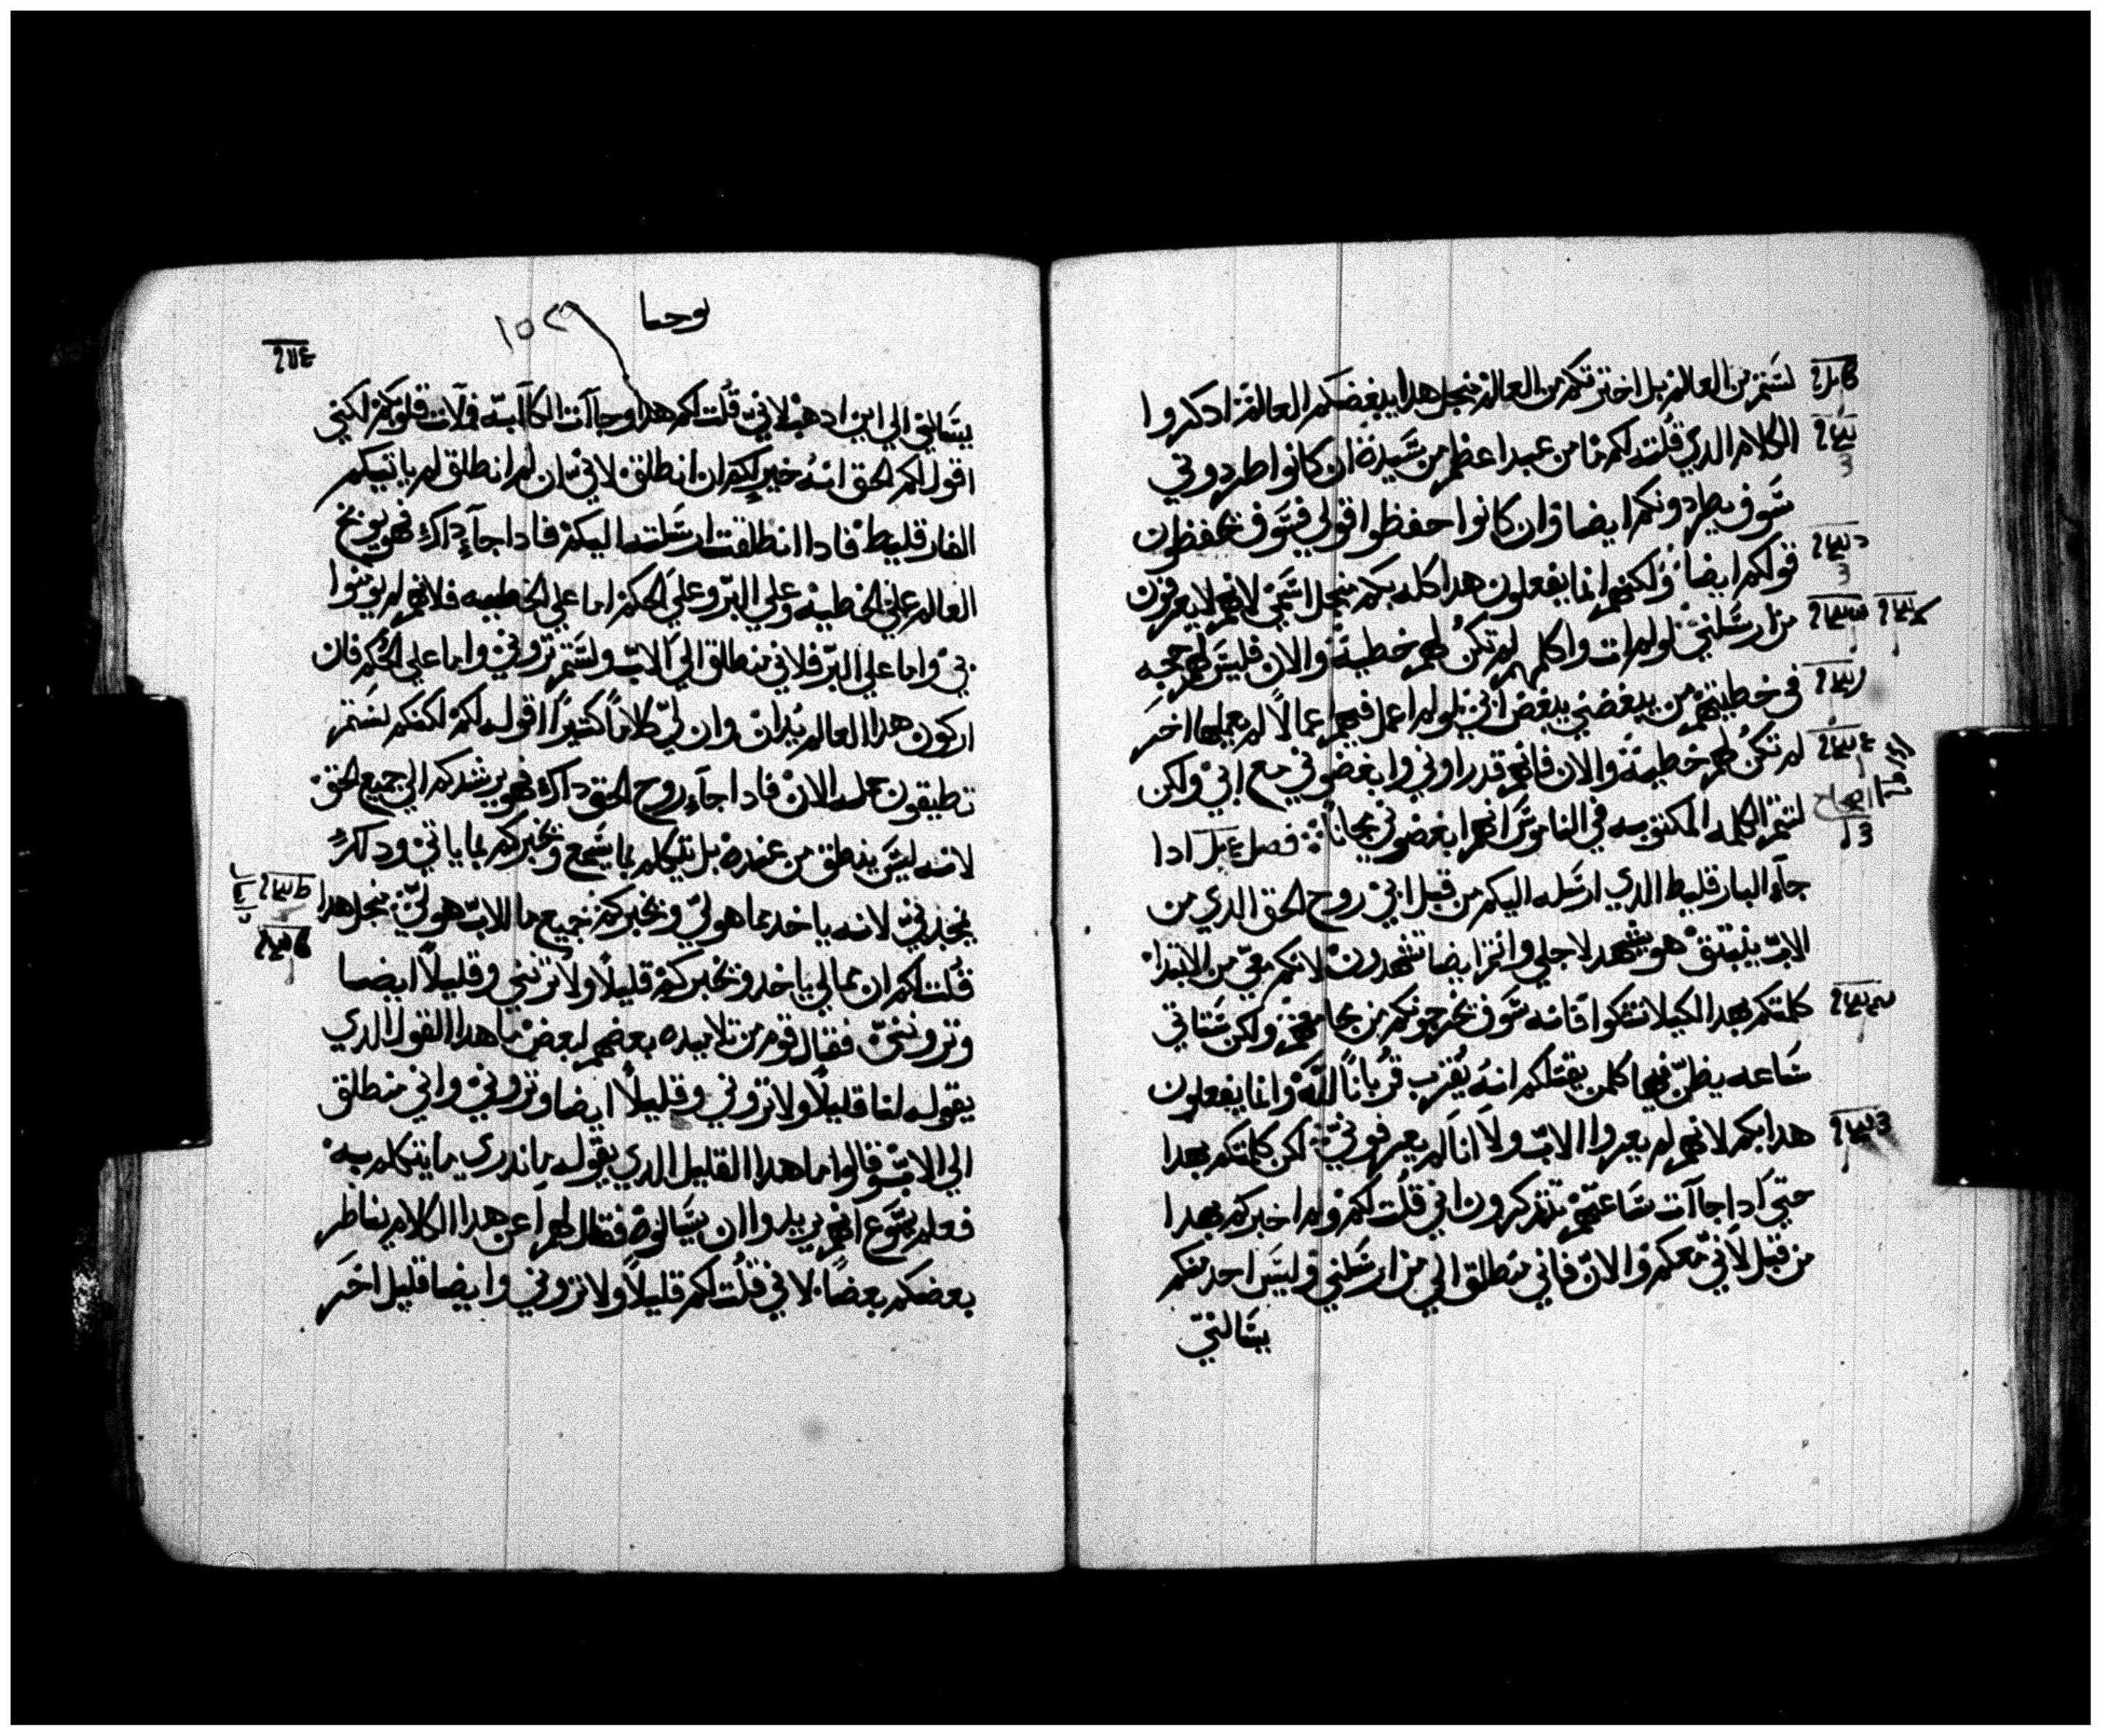 لستم من العالم بل اخترتكم من العالم منجل هدا يبغضكم العالم ادكروا
الكلام الدي قلت لكم ما من عبد اعظم من سيده ان كانوا طردوني
سوف يطردونكم ايضا وان كانوا حفظوا قولي فسوف يحفظون
قولكم ايضا ولكنهم انما يفعلون هدا كله بكم منجل اسمي لانهم لا يعرفون
من ارسلني لو لم ات واكلمهم لم تكن لهم خطية والان فليس لهم حجه
في خطيتهم من يبغضني يبغض ابي لو لم اعمل فيهم اعمالا لم يعملها اخر
لم تكن لهم خطيه والان فانهم قد راوني وابغضوني مع ابي ولكن
لتتم الكلمه المكتوبه في الناموس انهم ابغضوني مجانا فصل ادا
جاء البارقليط الدي ارسله اليكم من قبل ابي روح الحق الدي من
الاب ينبتق هو يشهد لاجلي وانتم ايضا تشهدون لانكم معي من الابتدا
كلمتكم بهدا لكيلا تشكوا فانه سوف يخرجونكم من مجامعهم ولكن ستاتي
ساعه يظن فيها كلمن يقتلكم انه يقرب قربانا لله وانما يفعلون
هدا بكم لانهم لم يعرفوا الاب ولا انا لم يعرفوني لكن كلمتكم بهدا
حتي ادا جاات ساعتهم تتدكرون اني قلت لكم ولم اخبركم بهدا
من قبل لاني معكم والان فاني منطلق الي من ارسلني وليس احد منكم
يسالني
يوحنا
يسالني الي اين ادهب لاني قلت لكم هدا وجاات الكاابه فملات قلوبكم لكني
اقول لكم الحق انه خير لكم ان انطلق لاني ان لم انطلق لم ياتيكم
الفارقليط فادا انطلقت ارسلته اليكم فادا جاء داك فهو يوبخ
العالم علي الخطيه وعلي البر وعلي الحكم اما علي الخطيه فلانهم لم يومنوا
بي واما علي البر فلاني منطلق الي الاب ولستم تروني واما علي الحكم فان
اركون هدا العالم يدان وان لي كلاما كتيرا اقوله لكم لكنكم لستم
تطيقون حمله الان فادا جاء روح الحق داك فهو يرشدكم الي جميع الحق
لانه ليس ينطق من عنده بل يتكلم بما يسمع ويخبركم بما ياتي ودلك
يمجدني لانه ياخد مما هو لي ويخبركم جميع ما للاب هو لي منجل هدا
قلت لكم ان مما لي ياخد ويخبركم قليلا ولا ترنني وقليلا ايضا
وترونني فقال قوم من تلاميده بعضهم لبعض ما هدا القول الدي
يقوله لنا قليلا ولا تروني وقليلا ايضا وتروني واني منطلق
الي الاب وقالوا ما هدا القليل الدي يقوله ما ندري ما يتكلم به
فعلم يسوع انهم يريدوا ان يسالوه فقال لهم اعن هدا الكلام يناظر
بعضكم بعضا لاني قلت لكم قليلا ولا تروني وايضا قليل اخر